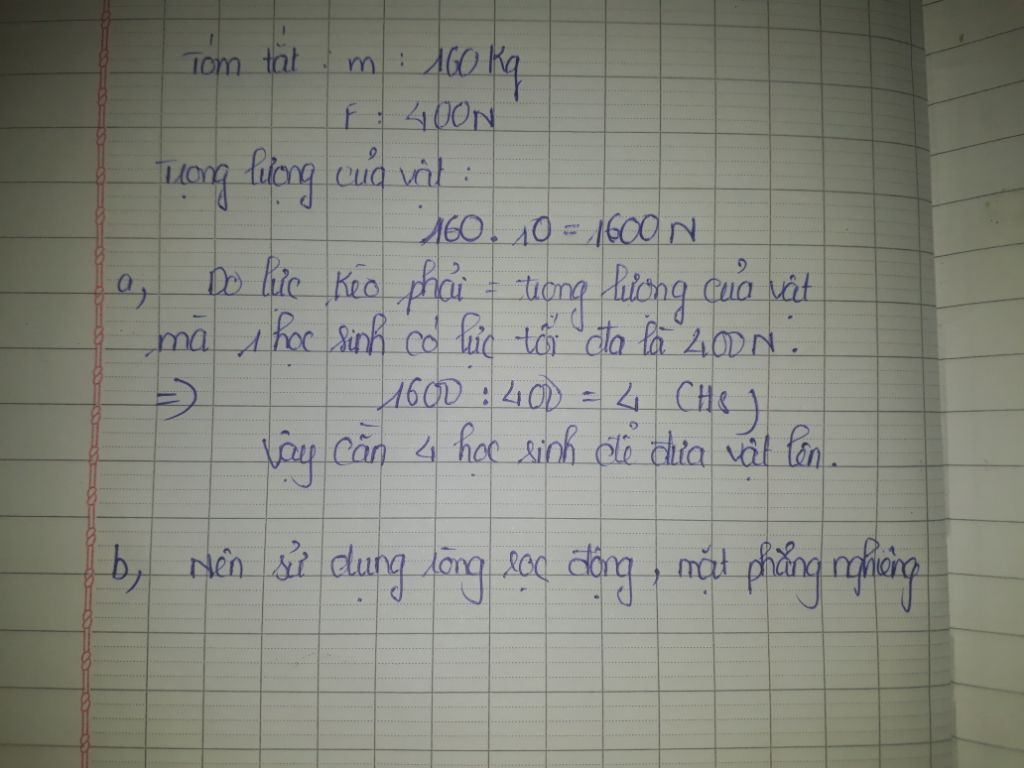 Tóm tắt : m : 160 Kg
F : 400N
Trọng lượng của vật :
160 . 10 = 1600 N
a, Do lực kéo phải = trọng lượng của vật
mà 1 học sinh có lực tối đa là 400N .
=> 1600 : 400 = 4 (HS)
Vậy cần 4 học sinh để đưa vật lên.
b, Nên sử dụng ròng rọc động , mặt phẳng nghiêng